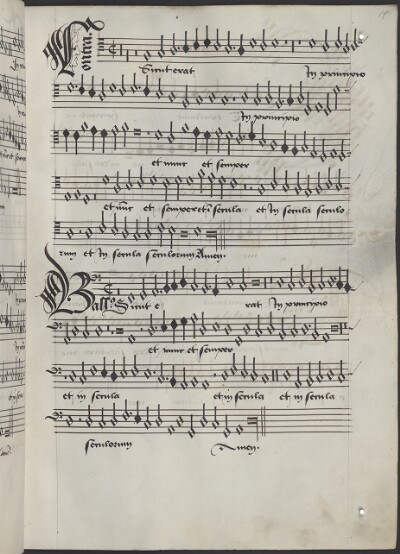 Contra
Sicut erat In principio
In principio
et nunc et semper
et nūc et semper et ī secula et In secula seculo
rum et In secula seculorum Amen.
Bass⁹ Sicut e rat In principio
et nunc et semper
et in secula et in secula et in secula
seculorum Amen.